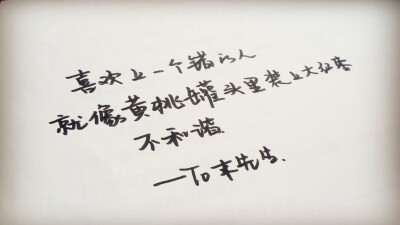 喜欢上一个错的人
就像黄桃罐头里装上大红枣
不和谐.
—To 末先生.